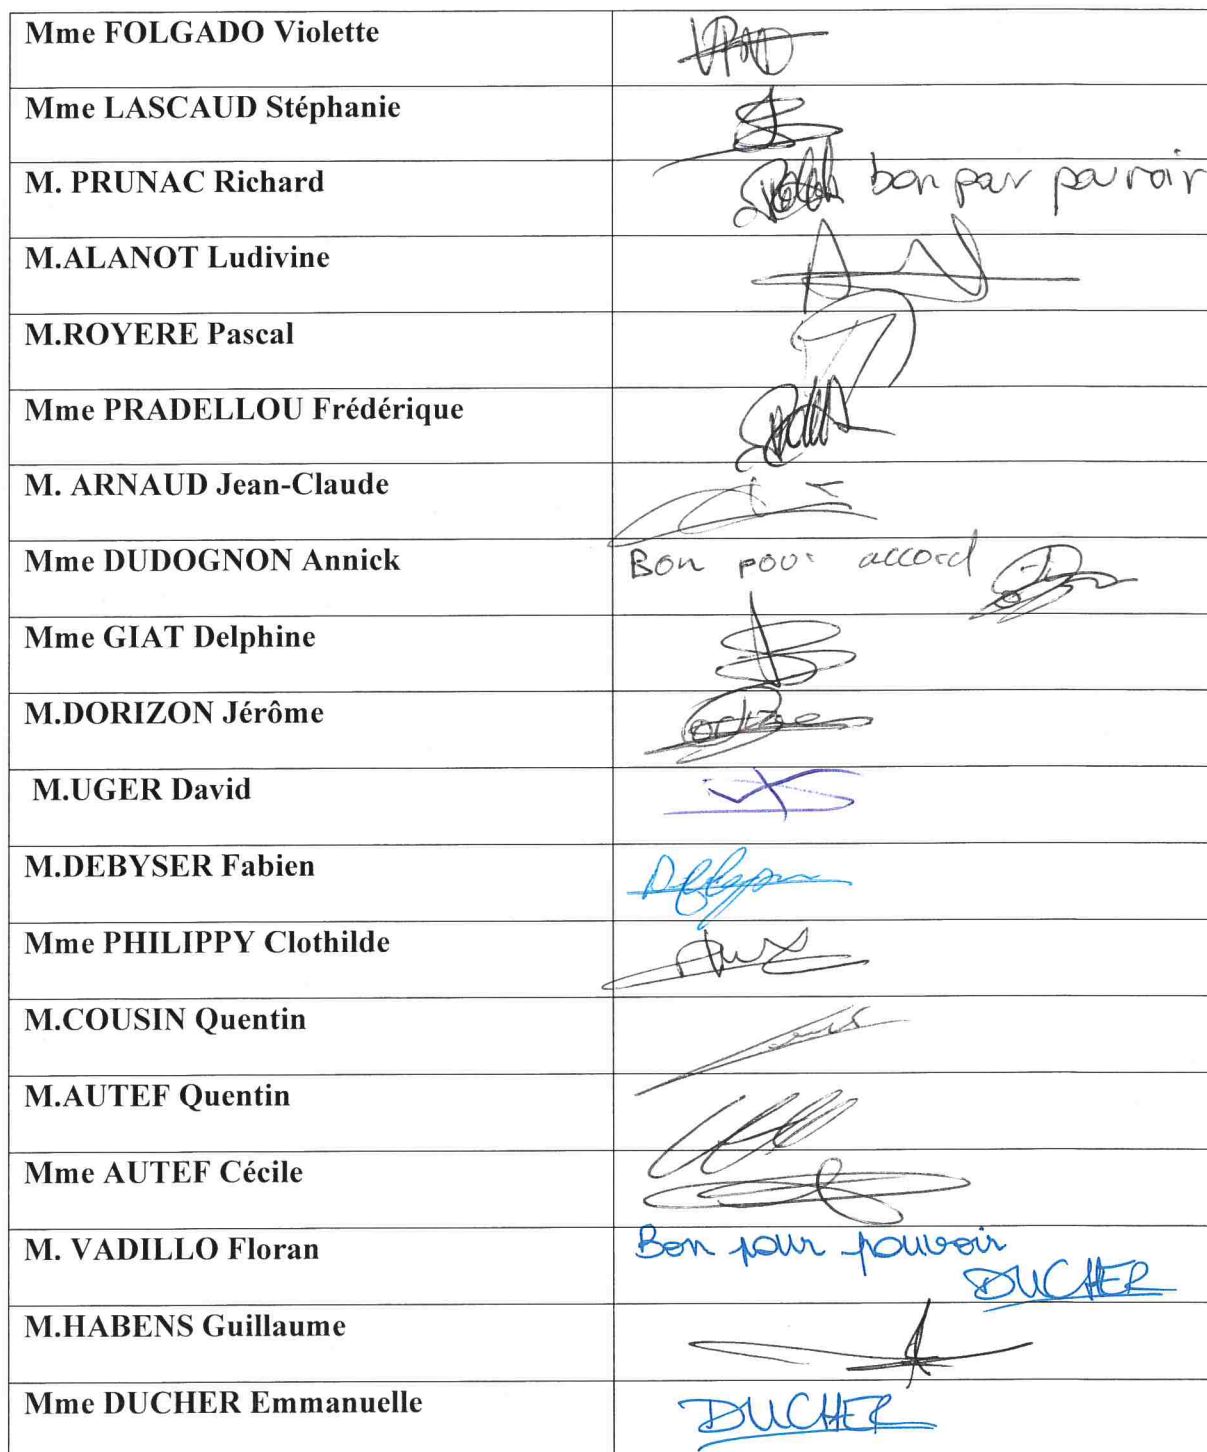 Mme FOLGADO Violette
Mme LASCAUD Stéphanie
M. PRUNAC Richard bon par pouvoir
M.ALANOT Ludivine
M.ROYERE Pascal
Mme PRADELLOU Frédérique
M. ARNAUD Jean-Claude
Mme DUDOGNON Annick Bon pour accord
Mme GIAT Delphine
M.DORIZON Jérôme
M.UGER David
M.DEBYSER Fabien
Mme PHILIPPY Clothilde
M.COUSIN Quentin
M.AUTEF Quentin
Mme AUTEF Cécile
M. VADILLO Floran Bon pour pouvoir
DUCHER
M.HABENS Guillaume
Mme DUCHER Emmanuelle DUCHER